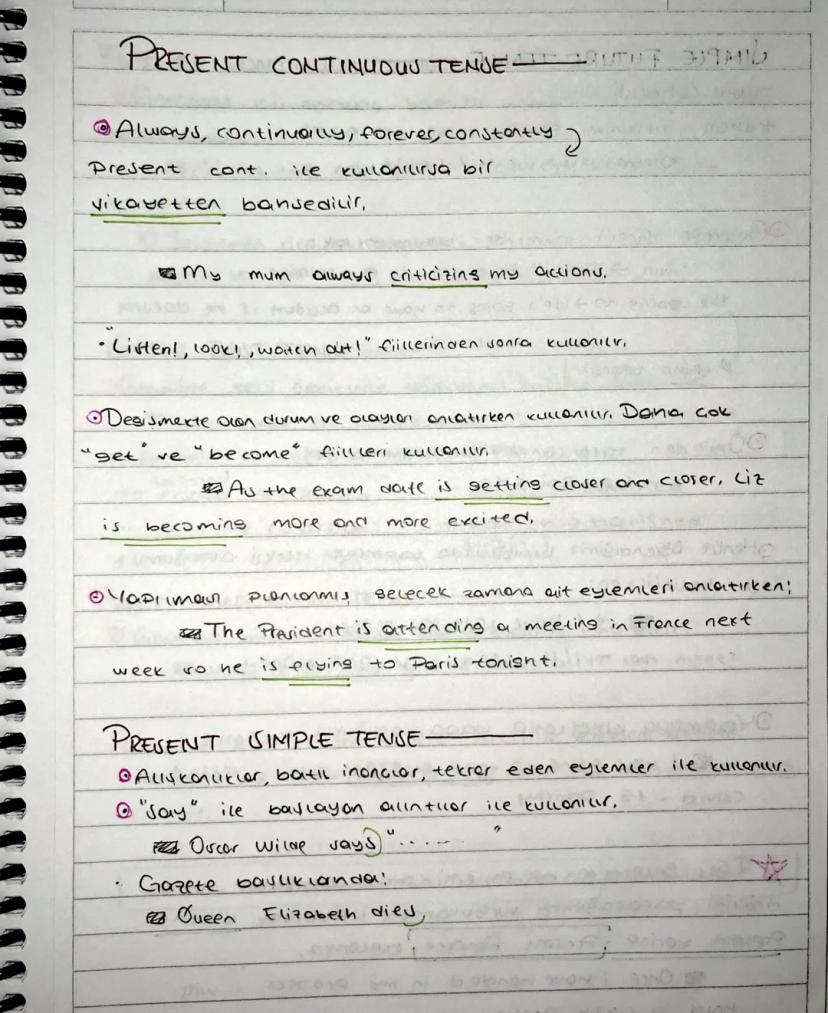 PRESENT CONTINUOUS TENSE
Always, continually, forever, constantly
Present cont. ile kullanılırsa bir
şikayetten bahsedilir.
My mum always criticizing my actions.
"Listen!, look!, watch out!" fiillerinden sonra kullanılır.
Değişmekte olan durum ve olayları anlatırken kullanılır. Daha çok
"get" ve "become" fiilleri kullanılır.
As the exam date is getting closer and closer, Liz
is becoming more and more excited.
Yapılması planlanmış, gelecek zamana ait eylemleri anlatırken;
The President is attending a meeting in France next
week so he is flying to Paris tonight.
PRESENT SIMPLE TENSE
Alışkanlıklar, batıl inançlar, tekrar eden eylemler ile kullanılır.
"Say" ile başlayan alıntılar ile kullanılır.
Oscar Wilde says "..... "
Gazete başlıklarında:
Queen Elizabeth dies